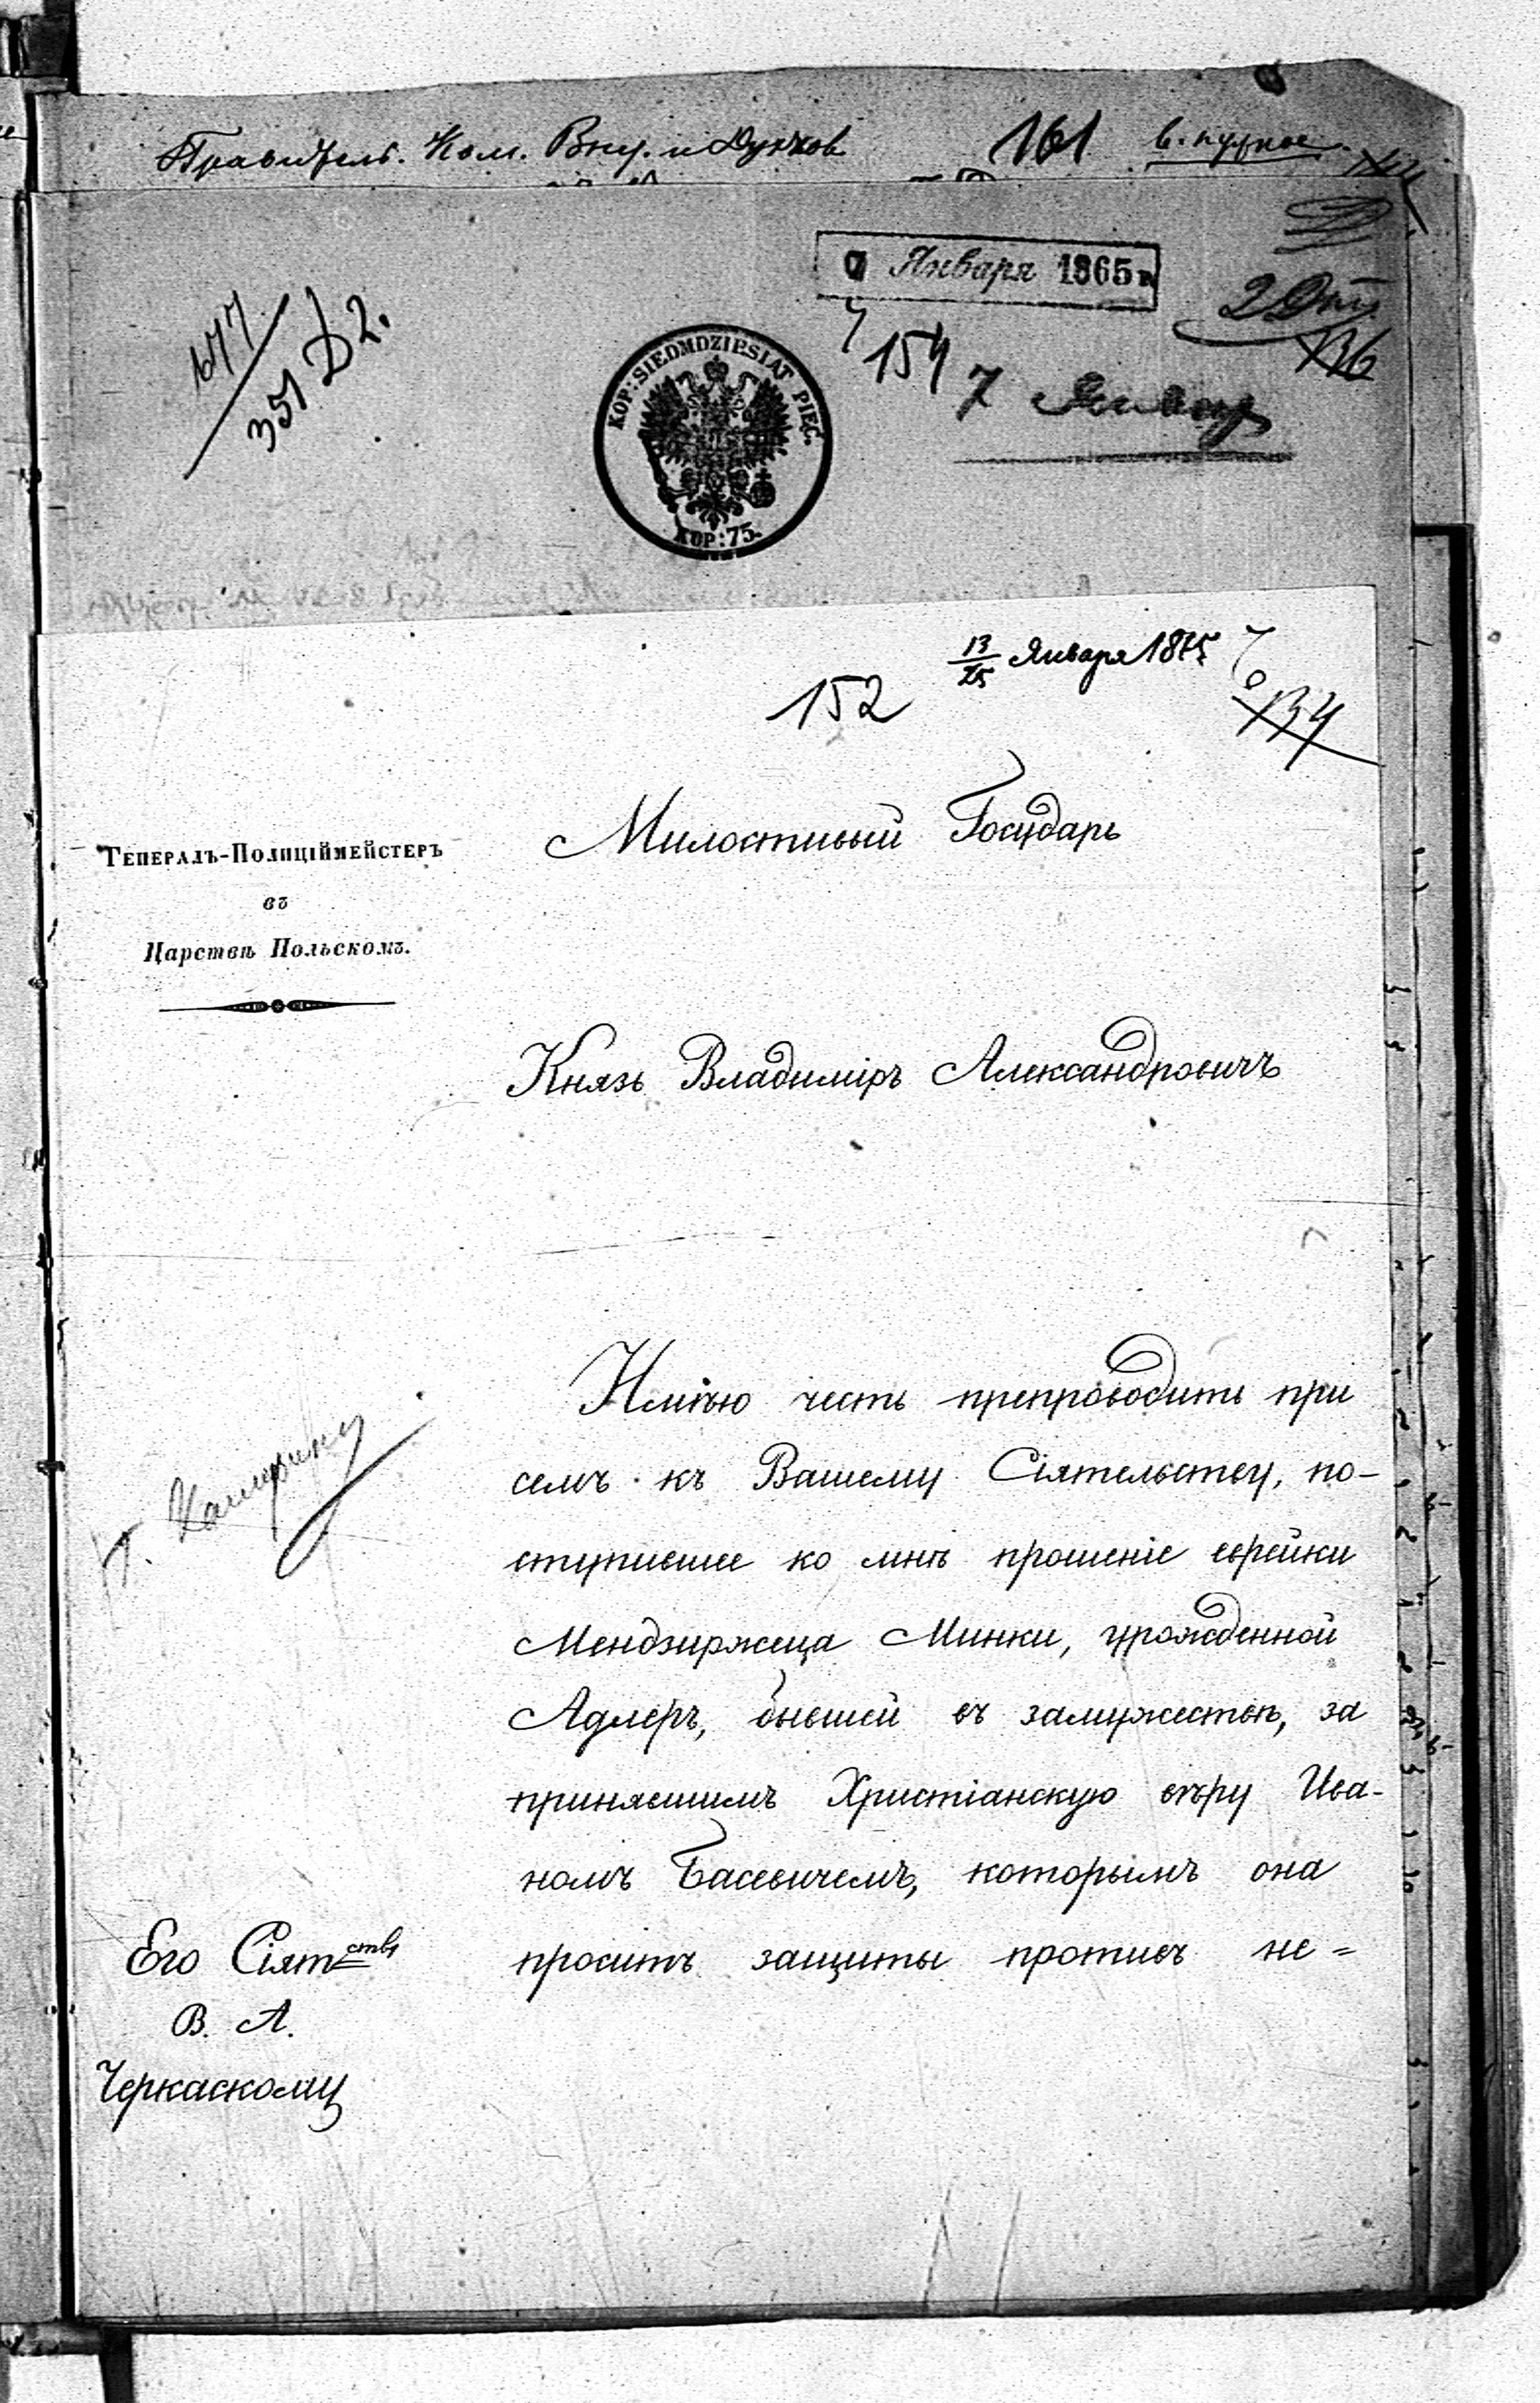 Правител. Ком. Вну. и Духов 161
Января 1865 г.
677
351 Д 2.
KOP: SIEDMDZIESIAT PIĘC.
KOP: 75.
154 7 Январ
136
13/25 Января 1865
152
134
Генералъ-Полиціймейстеръ
въ
Царствѣ Польскомъ.
Милостивый Государь
Князь Владиміръ Александровичъ
Имѣю честь препроводить при
семъ къ Вашему Сіятельству, по-
ступившее ко мнѣ прошеніе еврейки
Мендзиржеца Минки, урожденной
Адлеръ, бывшей въ замужествѣ, за
принявшимъ Христіанскую вѣру Ива-
номъ Басевичемъ, которымъ она
проситъ защиты противъ не=
Его Сіятства
В. А.
Черкаскому